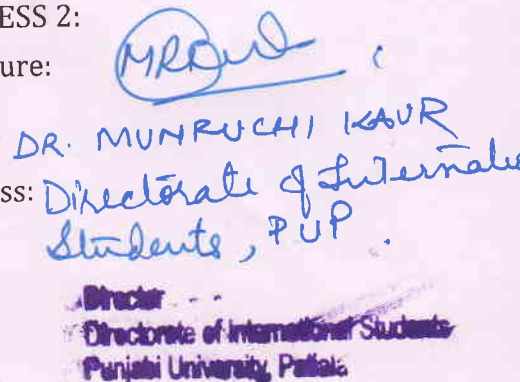 ESS 2:
ure:
DR. MUNRUCHI KAUR
ss: Directorate of Internatio
Students, PUP.
Director
Directorate of International Students
Punjabi University, Patiala